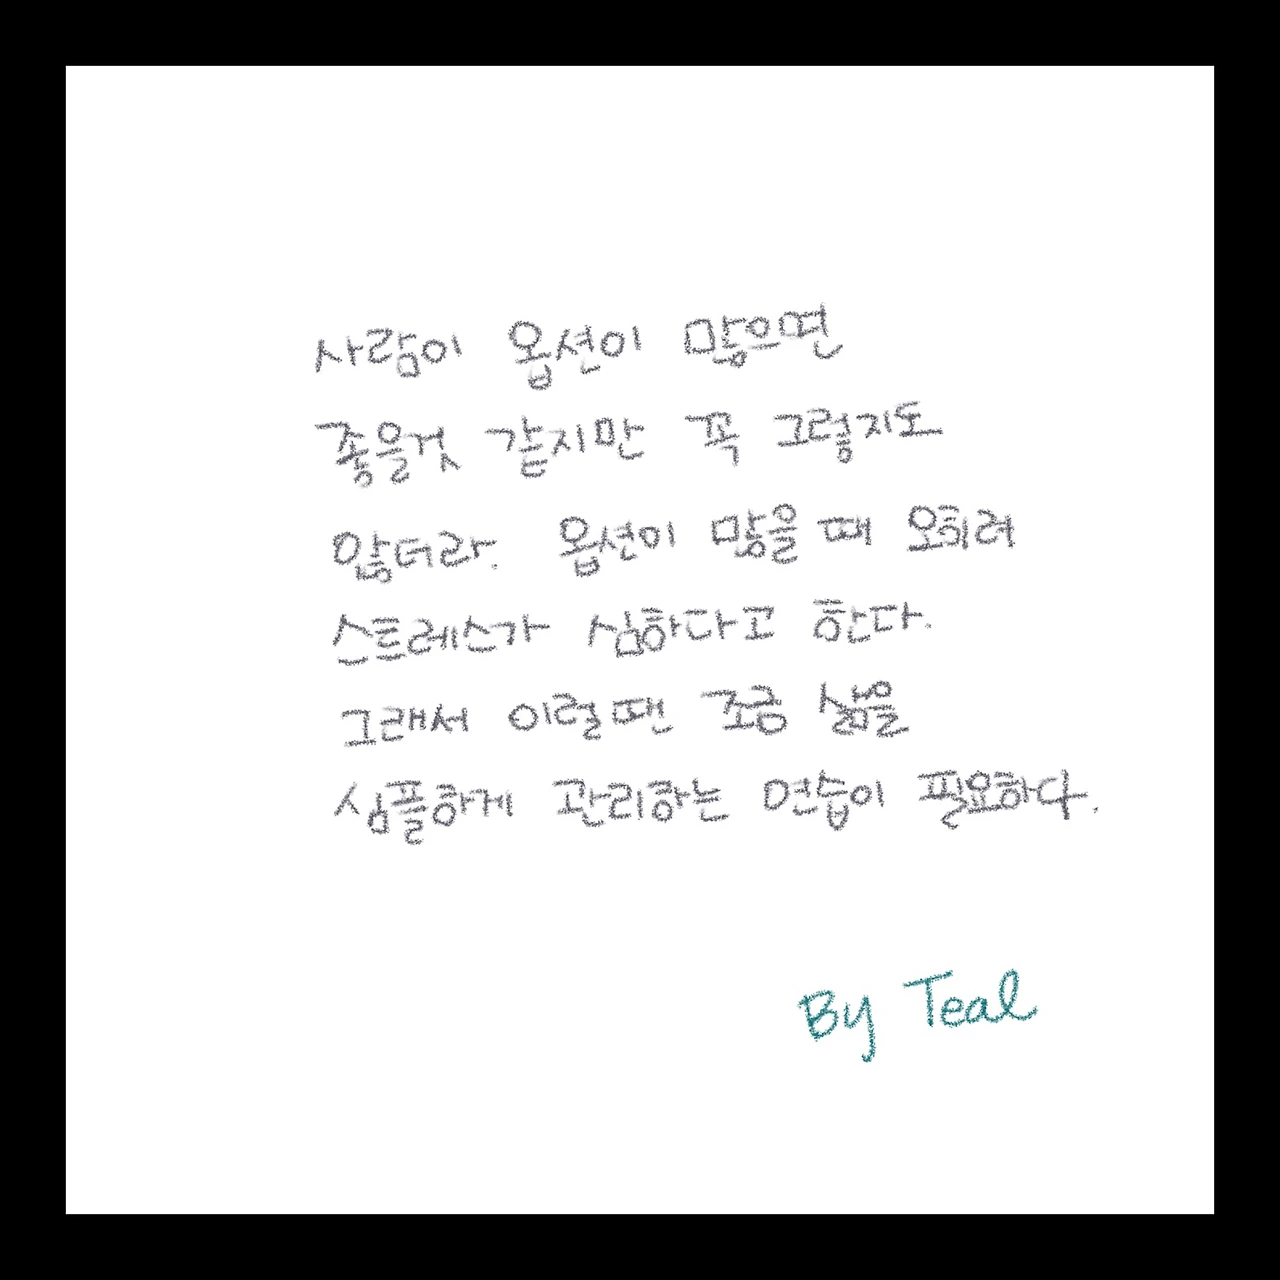 사람이 옵션이 많으면
좋을것 같지만 꼭 그렇지도
않더라. 옵션이 많을 때 오히려
스트레스가 심하다고 한다.
그래서 이럴땐 조금 삶을
심플하게 관리하는 연습이 필요하다.
By Teal